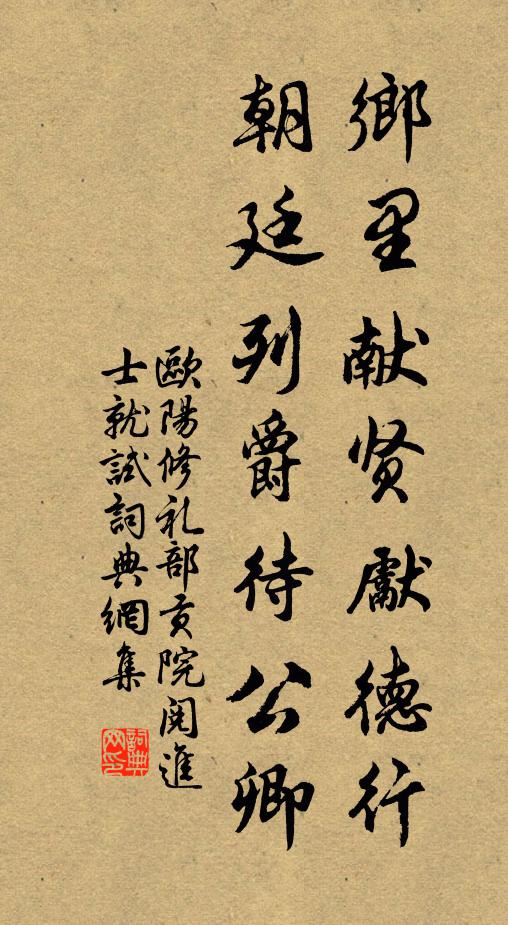 鄉里献贤德行
朝廷列爵待公卿
歐陽修礼部贡院阅進
士就試詞典網集
詞典网印